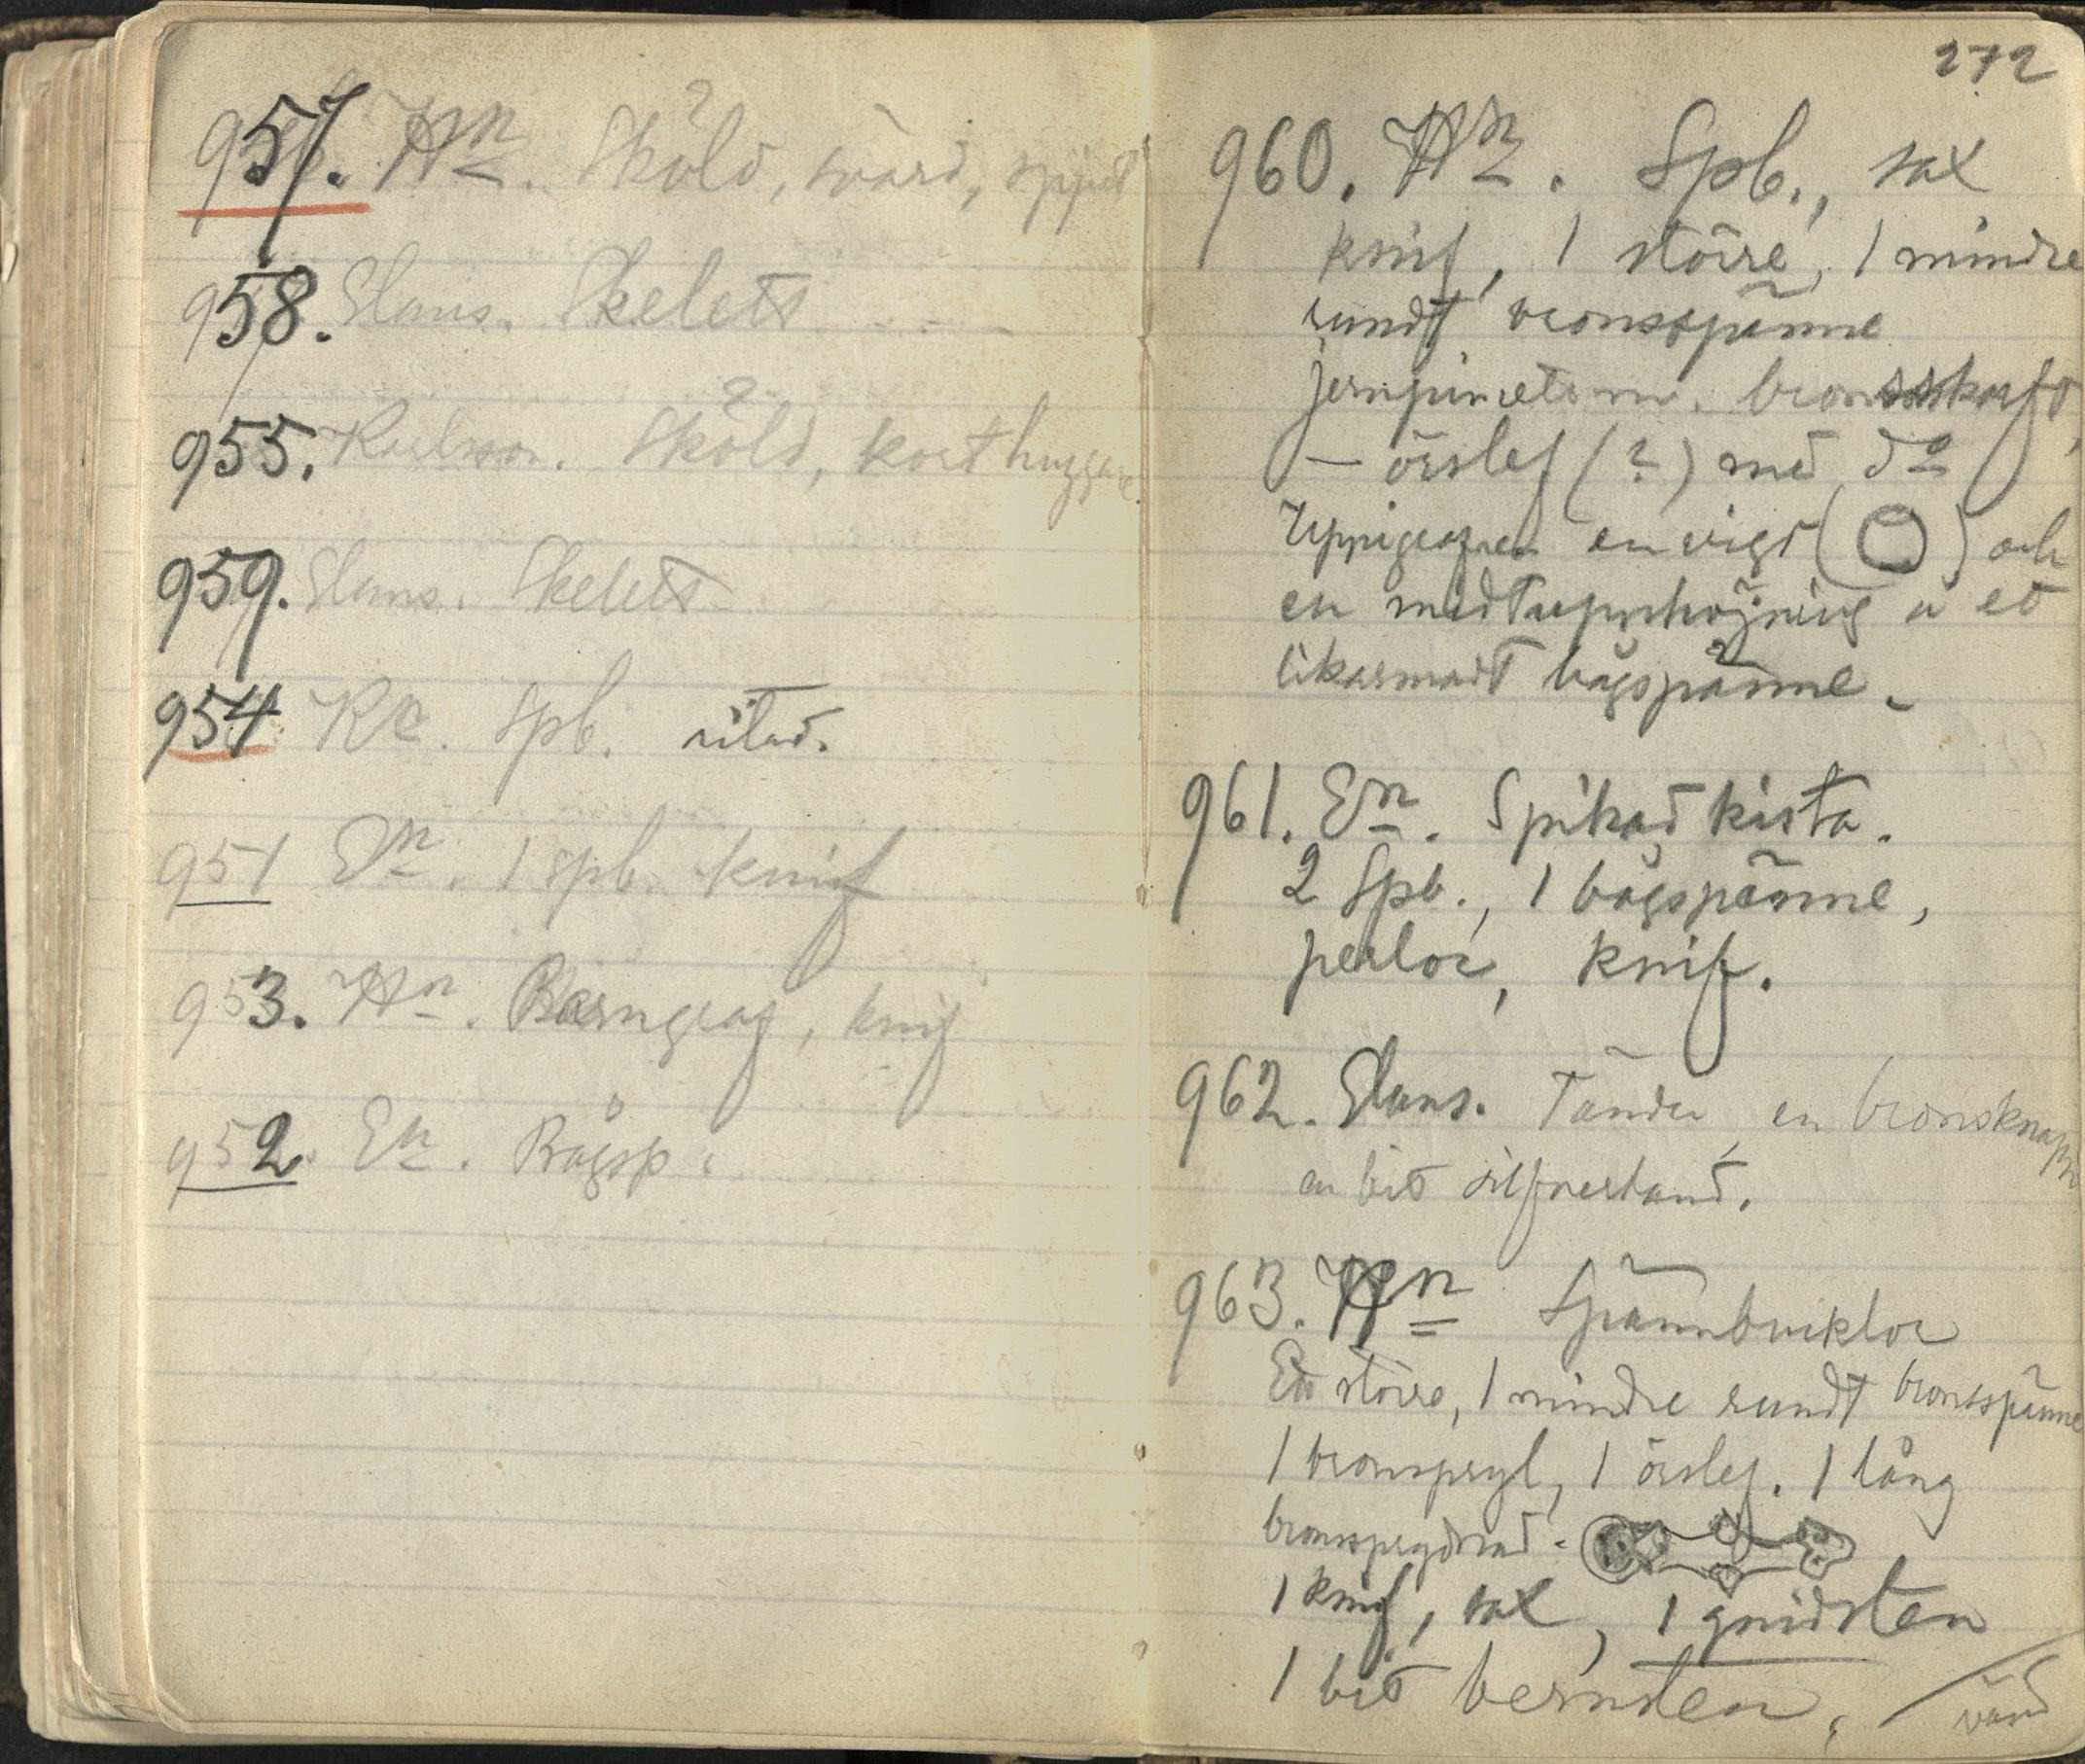 957. Hn. Sköld, svärd, spjut
958. Elans. Skelett
955. Karlsson. Sköld, kort huggare
959. Elans. Skelett
954 Kc. Spb. ritad.
951 En. 1 spb. knif
953. Hn. Barngraf, knif
952. En. Bågsp.
272
960. Hn. Spb., sax
knif, 1 större, 1 mindre
rundt bronsspänne
jernpincett m. bronsskaft,
– örslef (?) med do
en vigt (O) och
en med upphöjning å ett
likarmadt bågspänne.
961. En. Spikad kista.
2 Spb., 1 bågspänne,
perlor, knif.
962. Elans. Tänder, en bronsknapp
en bit silfverband.
963. Hn Spännbucklor
Ett större, 1 mindre rundt bronsspänne
1 bronspryl, 1 örslef. 1 lång
bronsprydnad.
1 knif, sax, 1 gnidsten
1 bit bernsten,
vänd